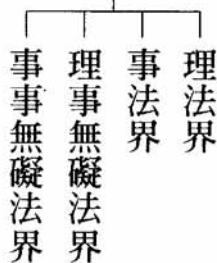 理法界
事法界
理事無礙法界
事事無礙法界